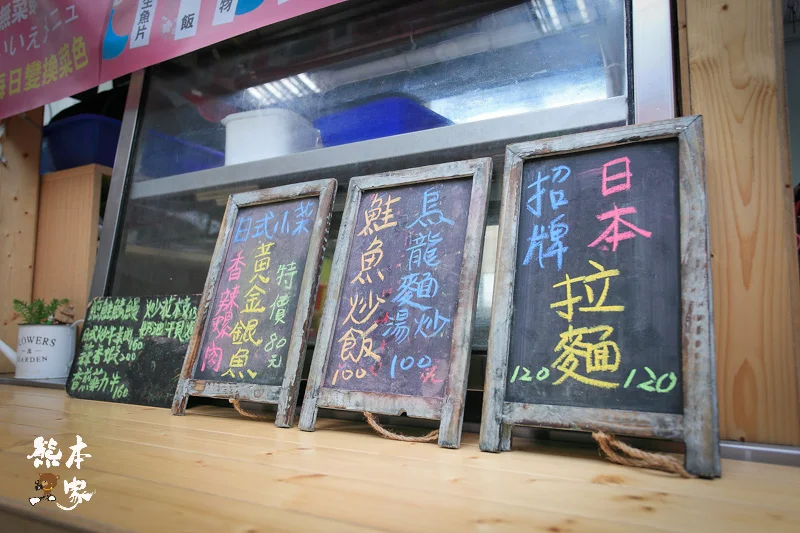 生魚片
飯
物
無菜
いいえ
ニュ
每日變換菜色
日式小菜
黃金銀魚
香辣螺肉
特價80元
烏龍麵湯炒
100元
鮭魚炒飯
100
招牌
日本
拉麵
120
120
FLOWERS
&
GARDEN
熊本家